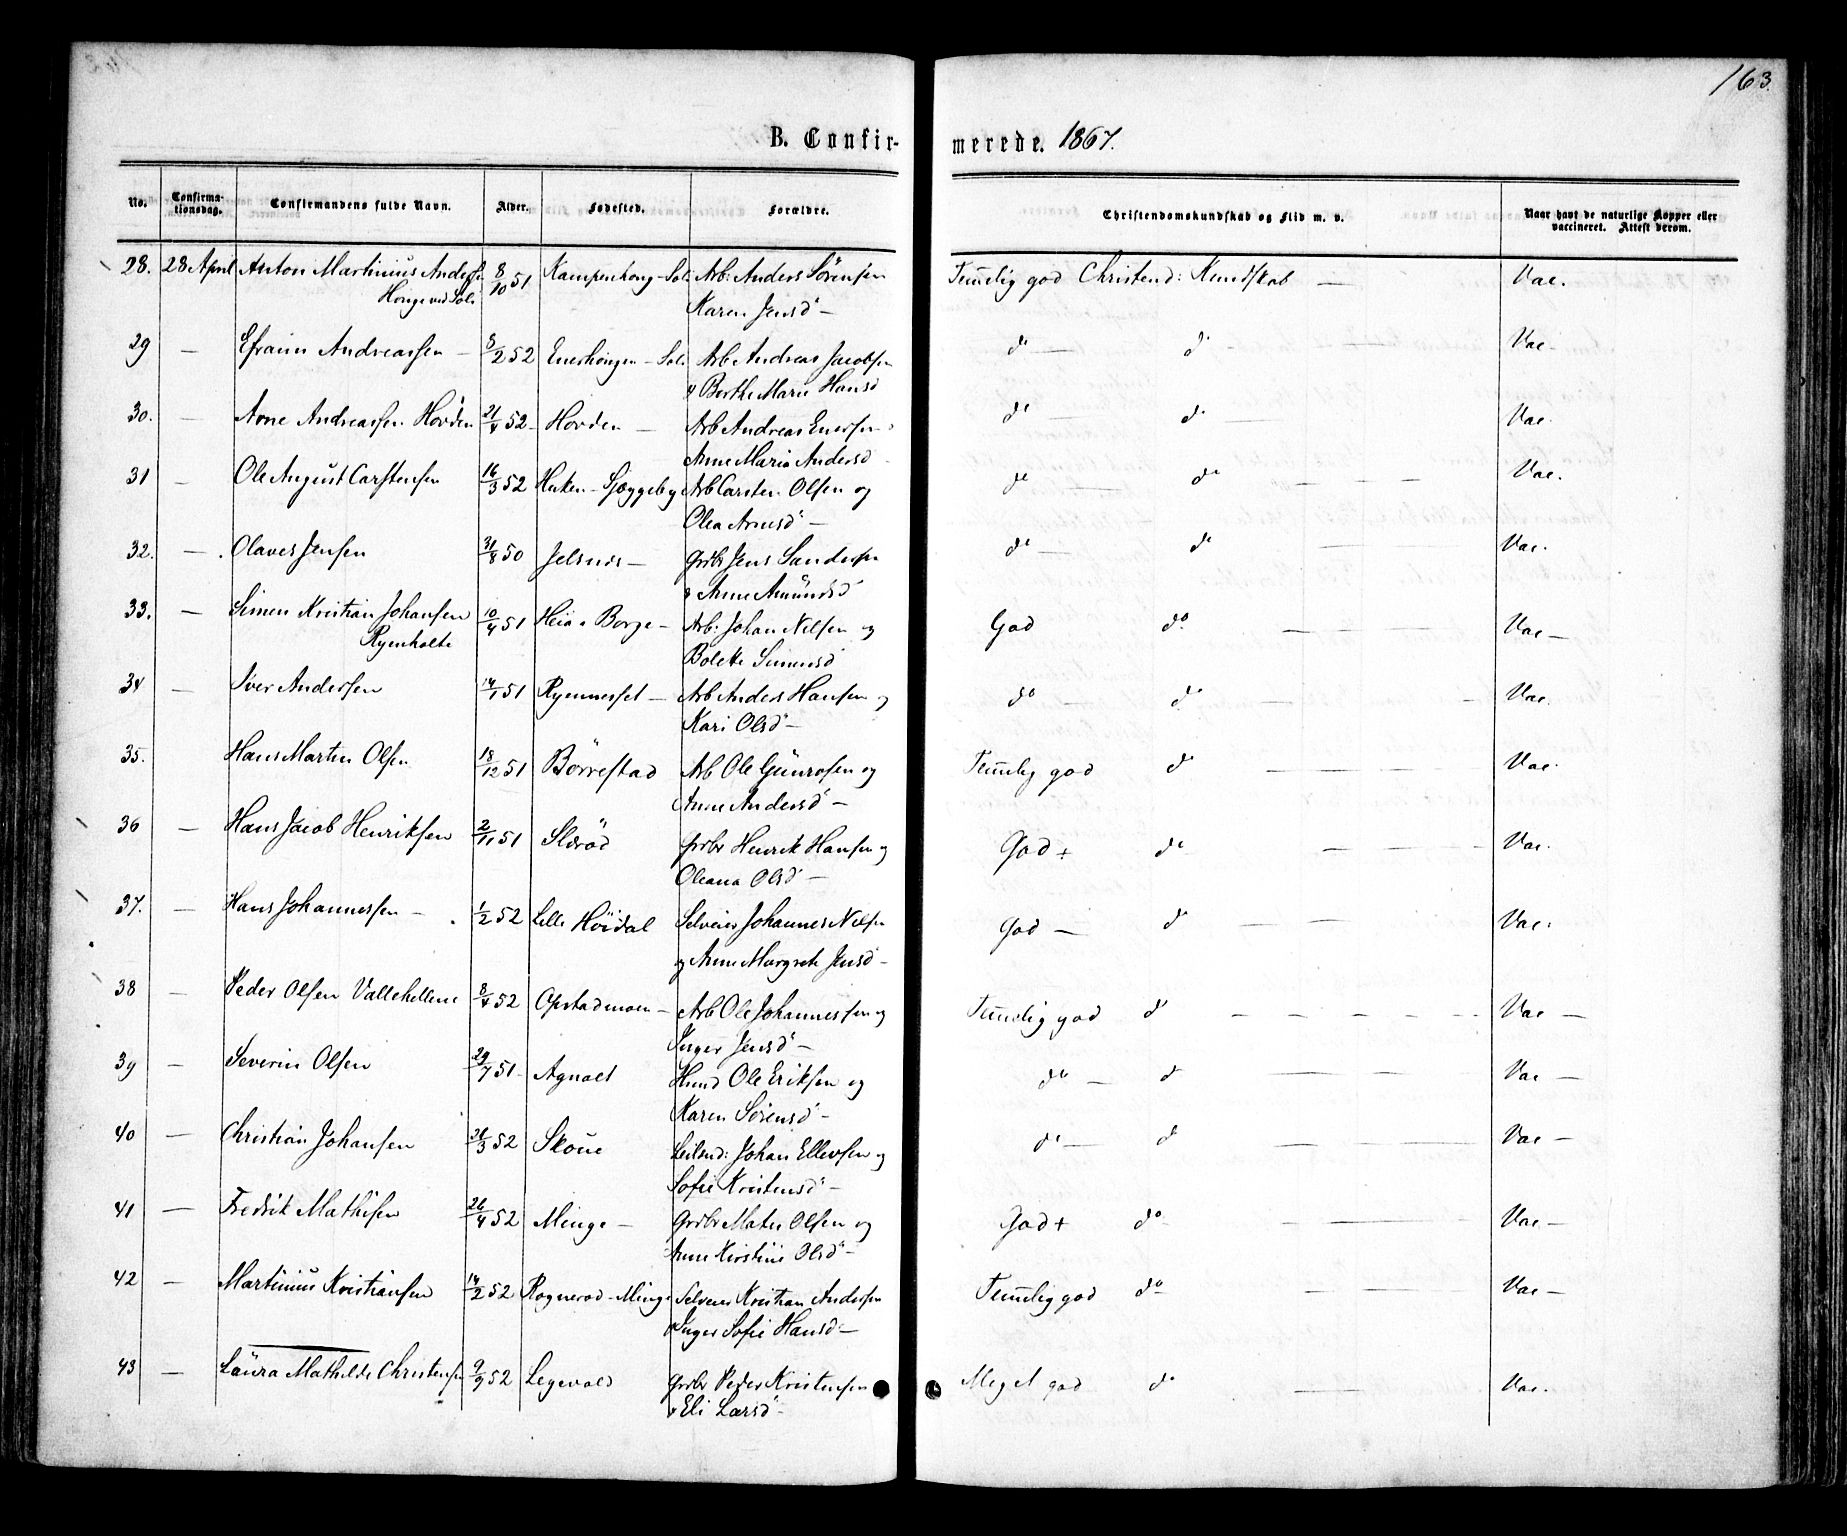 163.
B. Confirmerede. 1867.
No. Confirmationsdag. Confirmandens fulde Navn. Alder. Fødested. Forældre. Christendomskundskab og Flid m. v. Naar havt de naturlige Kopper eller vaccineret. Attest derom.
28. 28 April Anton Martinius Anders 8/10 51 Kampenhoug - Soli Arb: Anders Sörensen Temelig god Christend: Kundskab — Vac.
Houge ved Soli Karen Jensd –
29 — Efraim Andreassen – 8/2 52 Enerhougen - Soli Arb Andreas Jacobsen do — do - Vac -
y Berthe Marie Hansd
30. — Arne Andreassen Hovden 21/4 52 Hovden — Arb Andreas Enersen do — do — Vac.
Anne Maria Andersd
31 — Ole August Carstensen 16/3 52 Huken - Sjæggeby Arb Carsten Olsen og do do — — — Vac.
Olea Arnesd –
32. — Olaves Jensen 31/8 50 Jelsnes — Grdbr Jens Sandersen do — do — Vac.
& Anne Amundsd
33. — Simen Kristian Johansen 10/4 51 Heia - Borge – Arb: Johan Nilsen og God do — — — Vac —
Ryenholte Bolette Simensd
34 — Iver Andersen 14/1 51 Ryennesset — Arb Anders Hansen og do — do — — Vac.
Kari Olsd –
35. Hans Martin Olsen 18/12 51 Börrestad Arb Ole Gunrosen og Temelig god do — — — Vac.
Anne Andersd –
36 — Hans Jacob Henriksen 2/11 51 Slæröd Grdbr Henrik Hansen og God + do — — — Vac.
Oleana Olsd –
37. — Hans Johannessen – 1/2 52 Lille Höidal Selveier Johannes Nilsen God — do — — Vac.
og Anne Margrete Jensd –
38 — Peder Olsen Vallehellene 8/4 52 Opstadmoen – Arb Ole Johannessen og Temelig god do — — — — Vac —
Inger Jensd –
39 — Severin Olsen 29/7 51 - Agnalt Husmd Ole Eriksen og do — do Vac —
Karen Sörensd –
40 — Christian Johansen 26/3 52 Skoue Leilend: Johan Ellevsen og do — do — — Vac —
Sofie Kristensd –
41 — Fredrik Mathisen 26/4 52 Minge – Grdbr Mates Olsen og God + do — — Vac —
Anne Kirstine Olsd –
42 — Martinius Kristiansen 14/2 52 Rogneröd - Minge Selveier Kristian Andersen Temelig god do — — Vac —
& Inger Sofie Hansd –
43 — Laura Mathilde Christensen 9/9 52 Legevold Grdbr Peder Kristensen Meget god do — Vac.
& Eli Larsd –